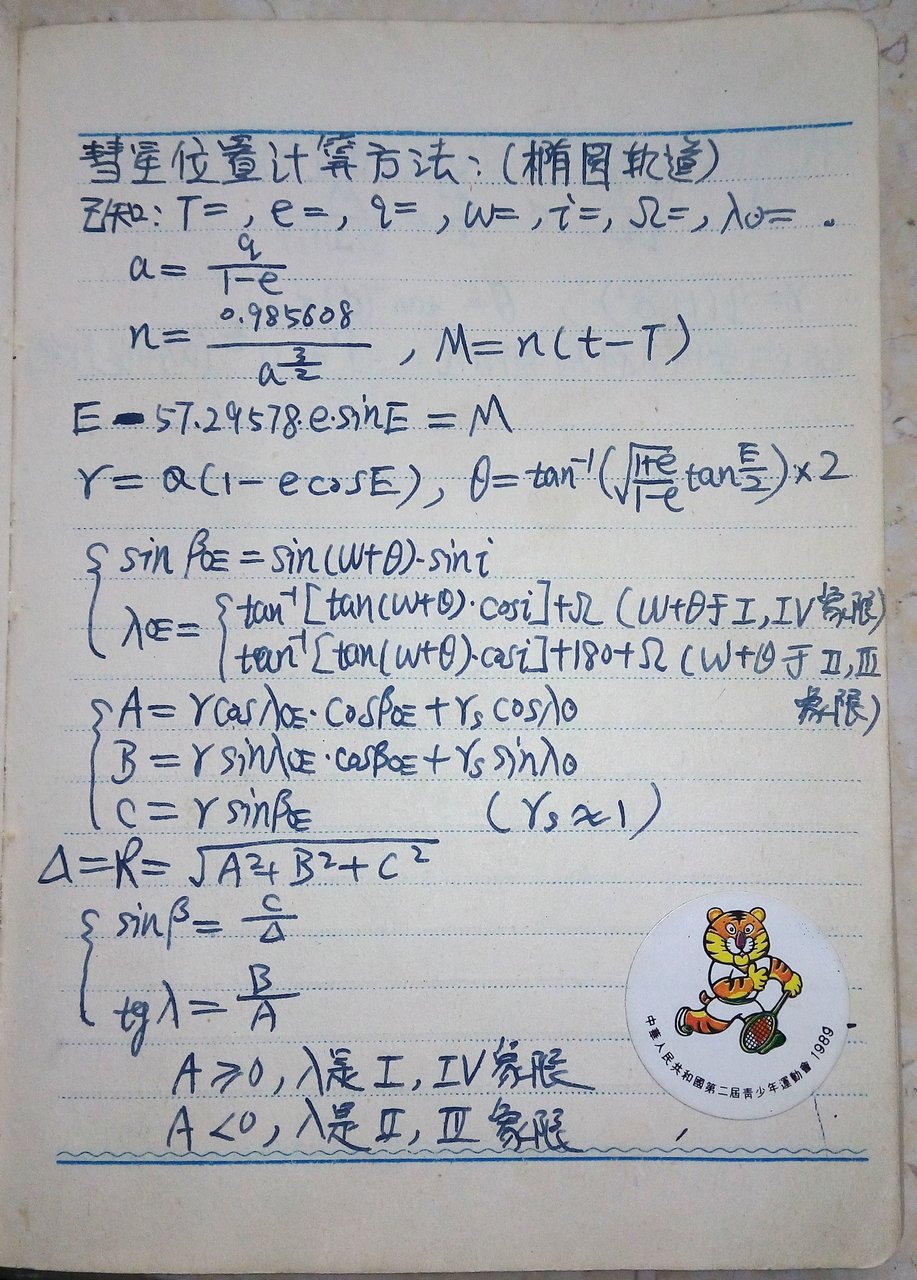 彗星位置计算方法：（椭圆轨道）
已知：T=，e=，q=，w=，i=，Ω=，λ⊙=。
a= q/(1-e)
n= 0.985608/a^(3/2)，M=n(t-T)
E-57.29578·e·sinE=M
r=a(1-ecosE)，θ=tan⁻¹(√(1+e)/(1-e) tan E/2)×2
sinβOE=sin(w+θ)·sini
λOE={tan⁻¹[tan(w+θ)·cosi]+Ω（w+θ于I，IV象限）
tan⁻¹[tan(w+θ)·cosi]+180+Ω（w+θ于II，III
象限）
A=rcosλOE·cosβOE+rs cosλ⊙
B=rsinλOE·cosβOE+rs sinλ⊙
C=rsinβOE （rs≈1）
Δ=R=√(A²+B²+C²)
sinβ=C/Δ
tgλ=B/A
A≥0，λ是I，IV象限
A<0，λ是II，III象限
中華人民共和國第二屆青少年運動會1989